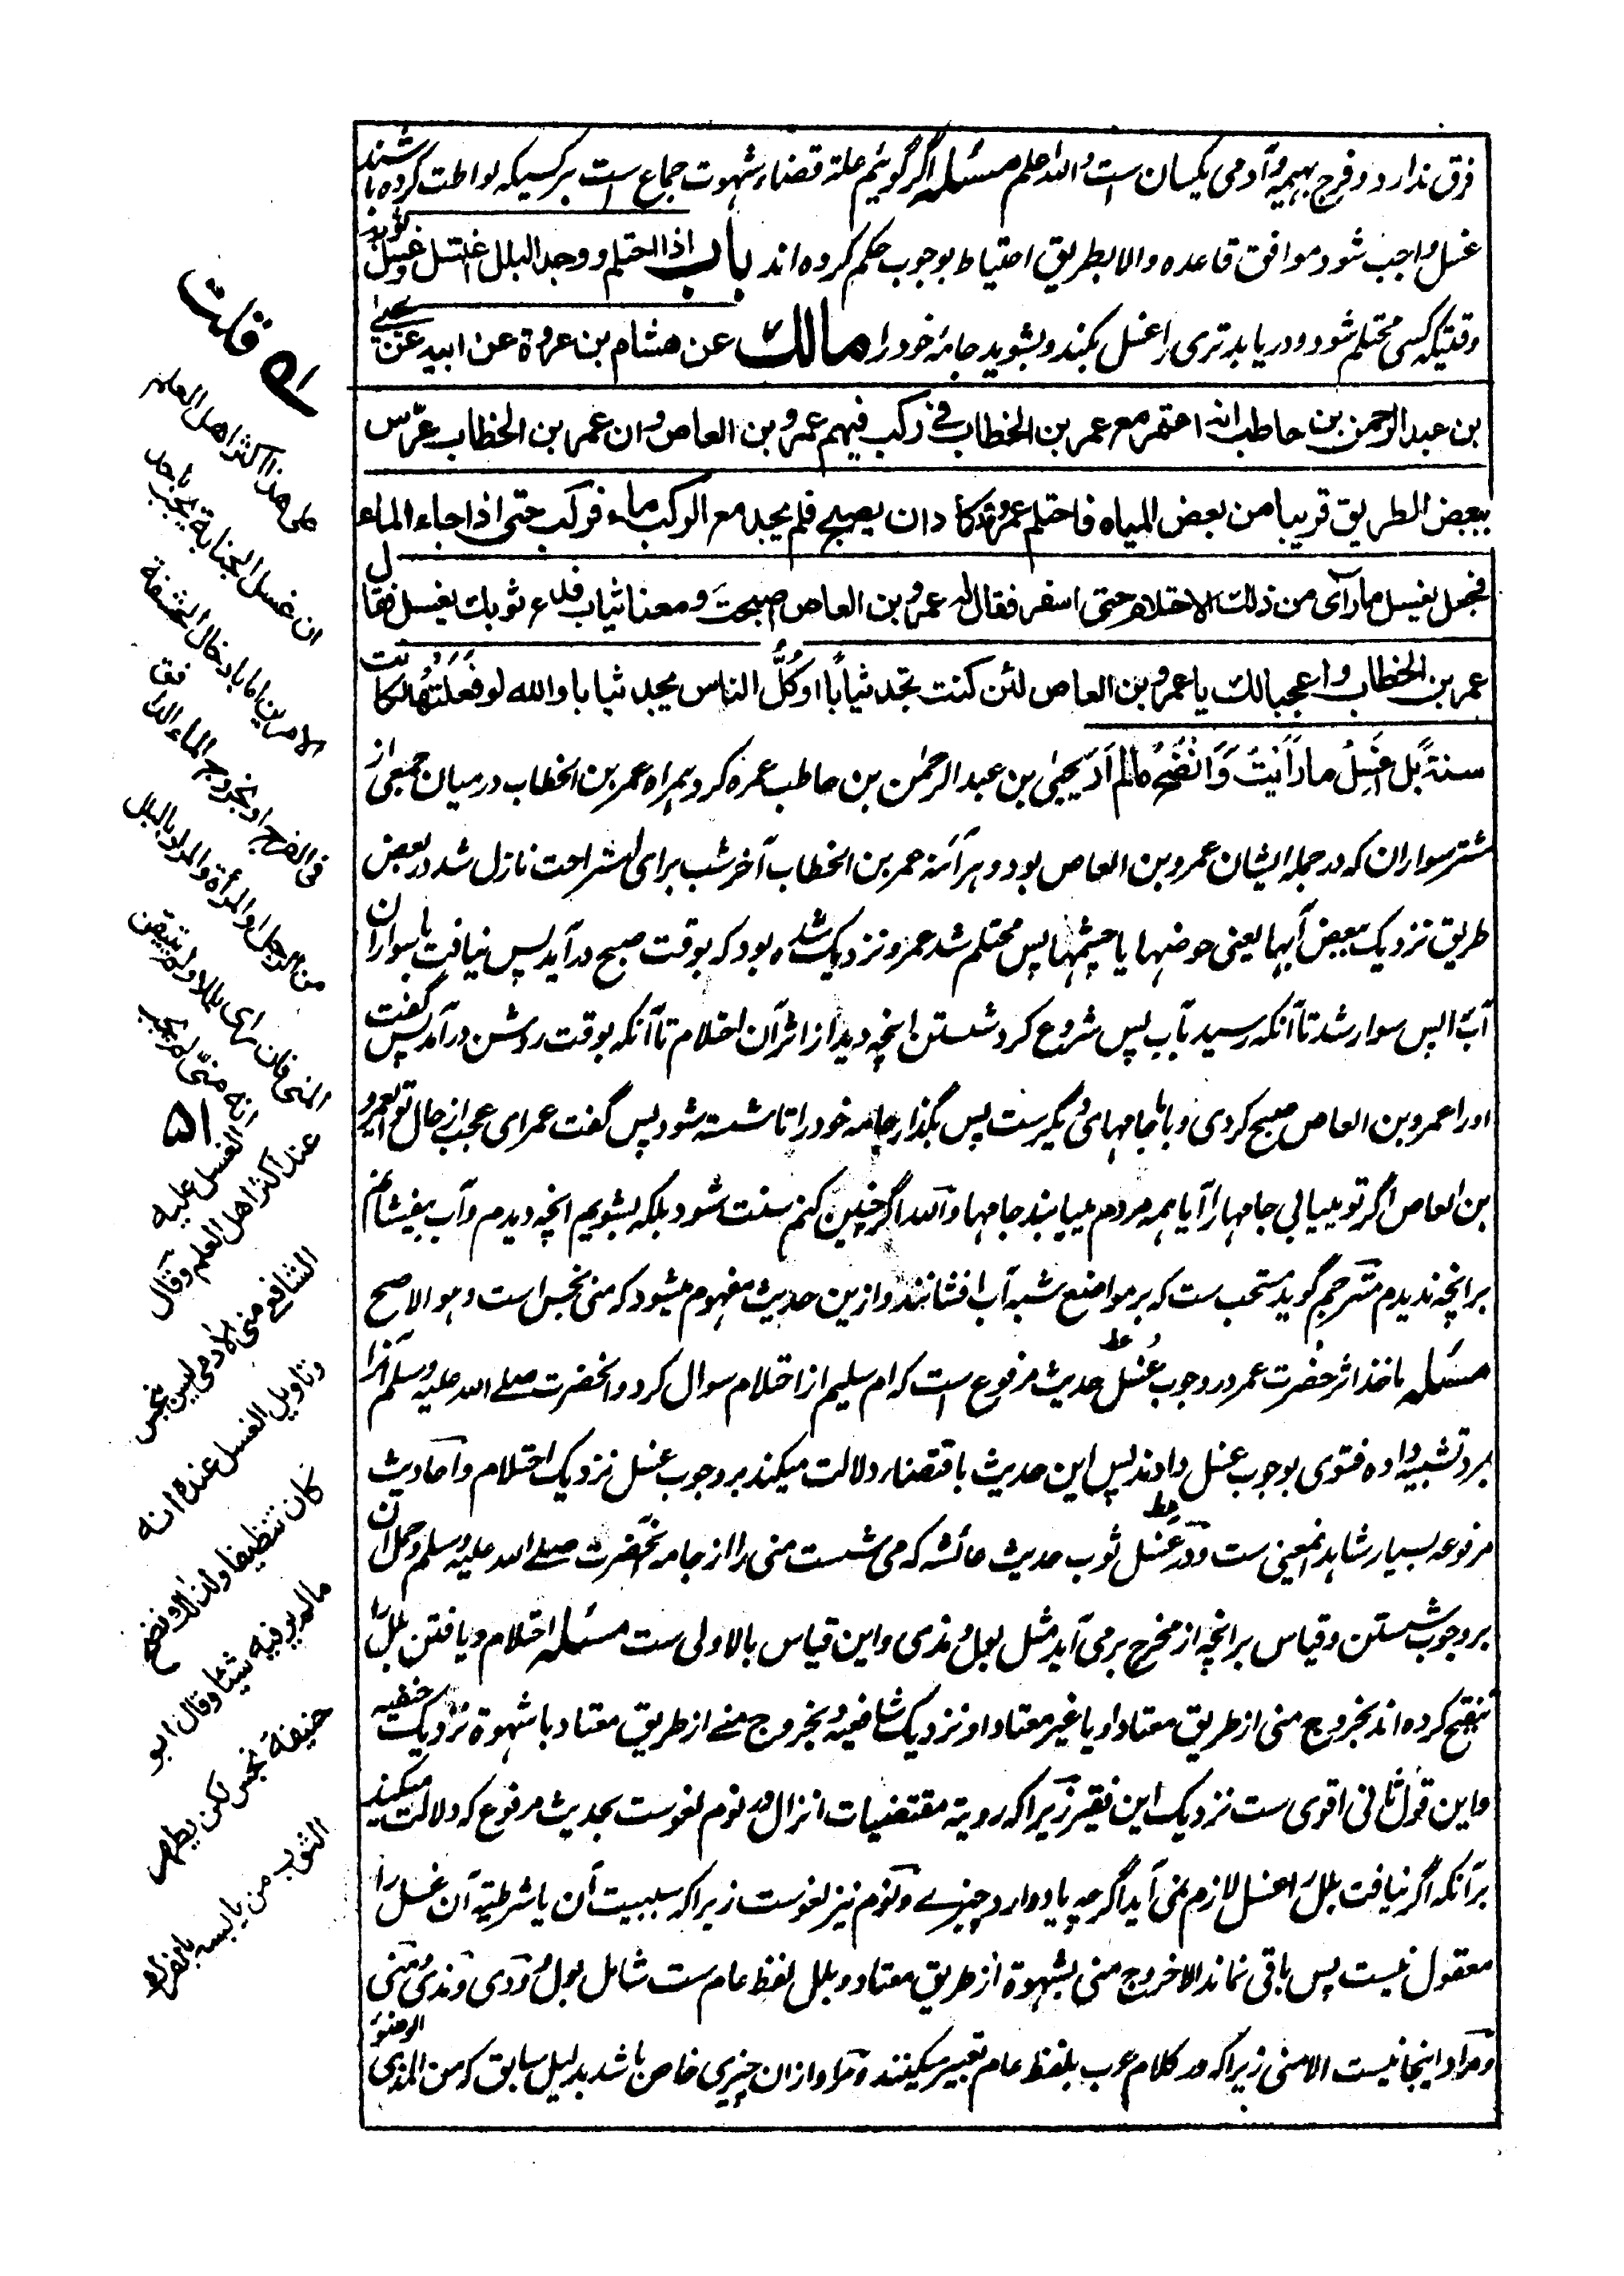 فرق ندارد و فرج بهیمه و آدمی یکسان است والله اعلم مسئله اگر گوئیم علة قضاء شهوت جماع است بر کسیکه لواطت کرده باشند
غسل واجب شود موافق قاعده والا بطریق احتیاط بوجوب حکم کرده اند باب اذا احتلم ووجد البلل اغتسل وغسل ثوبه
وقتیکه کسی محتلم شود و دریابد تری را غسل بکند و بشوید جامهٔ خود را مالك عن هشام بن عروة عن ابيه عن يحيى
بن عبد الرحمن بن حاطب انه اعتمر مع عمر بن الخطاب في ركب فيهم عمرو بن العاص وان عمر بن الخطاب عرّس
ببعض الطريق قريبا من بعض المياه فاحتلم عمر وقد كاد ان يصبح فلم يجد مع الركب ماء فركب حتى اذا جاء الماء
فجعل يغسل ما رأى من ذلك الاحتلام حتى اسفر فقال له عمرو بن العاص اصبحت ومعنا ثياب فدع ثوبك يغسل فقال
عمر بن الخطاب واعجبا لك يا عمرو بن العاص لئن كنت تجد ثياباً او كُلُّ الناس يجد ثيابا والله لو فَعَلتُهَا لكانت
سنة بل اَغسِلُ ما رَاَيتُ وَاَنْضَحُ ما لم اَرَ یحییٰ بن عبدالرحمٰن بن حاطب عمره کرد بهمراه عمر بن الخطاب در میان جمعی از
شتر سواران که در جمله ایشان عمرو بن العاص بود و هر آئنه عمر بن الخطاب آخر شب برای استراحت نازل شد در بعض
طریق نزدیک ببعض آبها یعنی حوضها یا چشمها پس محتلم شد عمر و نزدیک شده بود که بوقت صبح درآید پس نیافت با سواران
آب پس سوار شد تا آنکه رسید بآب پس شروع کرد شستن انچه دید از اثر آن احتلام تا آنکه بوقت روشن درآمد پس گفت
اورا عمرو بن العاص صبح کردی و با ما جامهای دیگرست پس بگذار جامه خود را تا شسته شود پس گفت عمر ای عجب از حال تو ای عمرو
بن العاص اگر تو مییابی جامها را آیا همه مردم مییابند جامها والله اگر چنین کنم سنت شود بلکه بشویم انچه دیدم و آب بیفشانم
بر انچه ندیدم مترجم گوید مستحب ست که بر مواضع شبه آب افشانند و ازین حدیث مفهوم میشود که منی نجس است وهو الاصح
مسئله ماخذ اثر حضرت عمر در وجوب غُسل حدیث مرفوع است که ام سلیم از احتلام سوال کرد و آنحضرت صلے الله علیه وسلم آنرا
بمرد تشبیه داده فتوی بوجوب غسل دادند پس این حدیث باقتضاء دلالت میکند بر وجوب غسل نزدیک احتلام و احادیث
مرفوعه بسیار شاهد اینمعنی ست و در غسل ثوب حدیث عائشه که می شست منی را از جامه آنحضرت صلے الله علیه وسلم و حمل آن
بر وجوب شستن و قیاس بر انچه از مخرج بر می آید مثل بول و مذی و این قیاس بالاولی ست مسئله احتلام و یافتن بلل را
تنقیح کرده اند بخروج منی از طریق معتاد او یا غیر معتاد او نزدیک شافعیه و بخروج منے از طریق معتاد با شهوة نزدیک حنفیه
و این قول ثانی اقوی ست نزدیک این فقیر زیرا که رویة مقتضیات انزال در نوم لغوست بحدیث مرفوع که دلالت میکند
بر آنکه اگر نیافت بلل را غسل لازم نمی آید اگرچه یاد دارد چیزے و نوم نیز لغوست زیرا که سببیت آن یا شرطیة آن غسل را
معقول نیست پس باقی نماند الا خروج منی بشهوة از طریق معتاد و بلل لفظ عام ست شامل بول و ودی و مذی و منی
و مراد اینجا نیست الا منی زیرا که در کلام عرب بلفظ عام تعبیر میکنند و مراد ازان چیزی خاص باشد بدلیل سابق که من المذی الوضوء
قلت
على هذا اكثر اهل العلم
ان غسل الجنابة يجب باحد
الامرين اما بادخال الحشفة
في الفرج او بخروج الماء الدافق
من الرجل او المرأة والمراد بالبلل
المنى فان رأى بللا ولم يتيقن
انه منىّ لم يجب
الغسل عليه
عند اكثر اهل العلم وقال
الشافعے منى الآدمى ليس بنجس
وتاويل الغسل عنده انه
كان تنظيفا ولذلك نضح
ما لم ير فيه شيئا وقال ابو
حنيفة نجس لكن يطهر
الثوب من يابسه بالفرك
۵۱